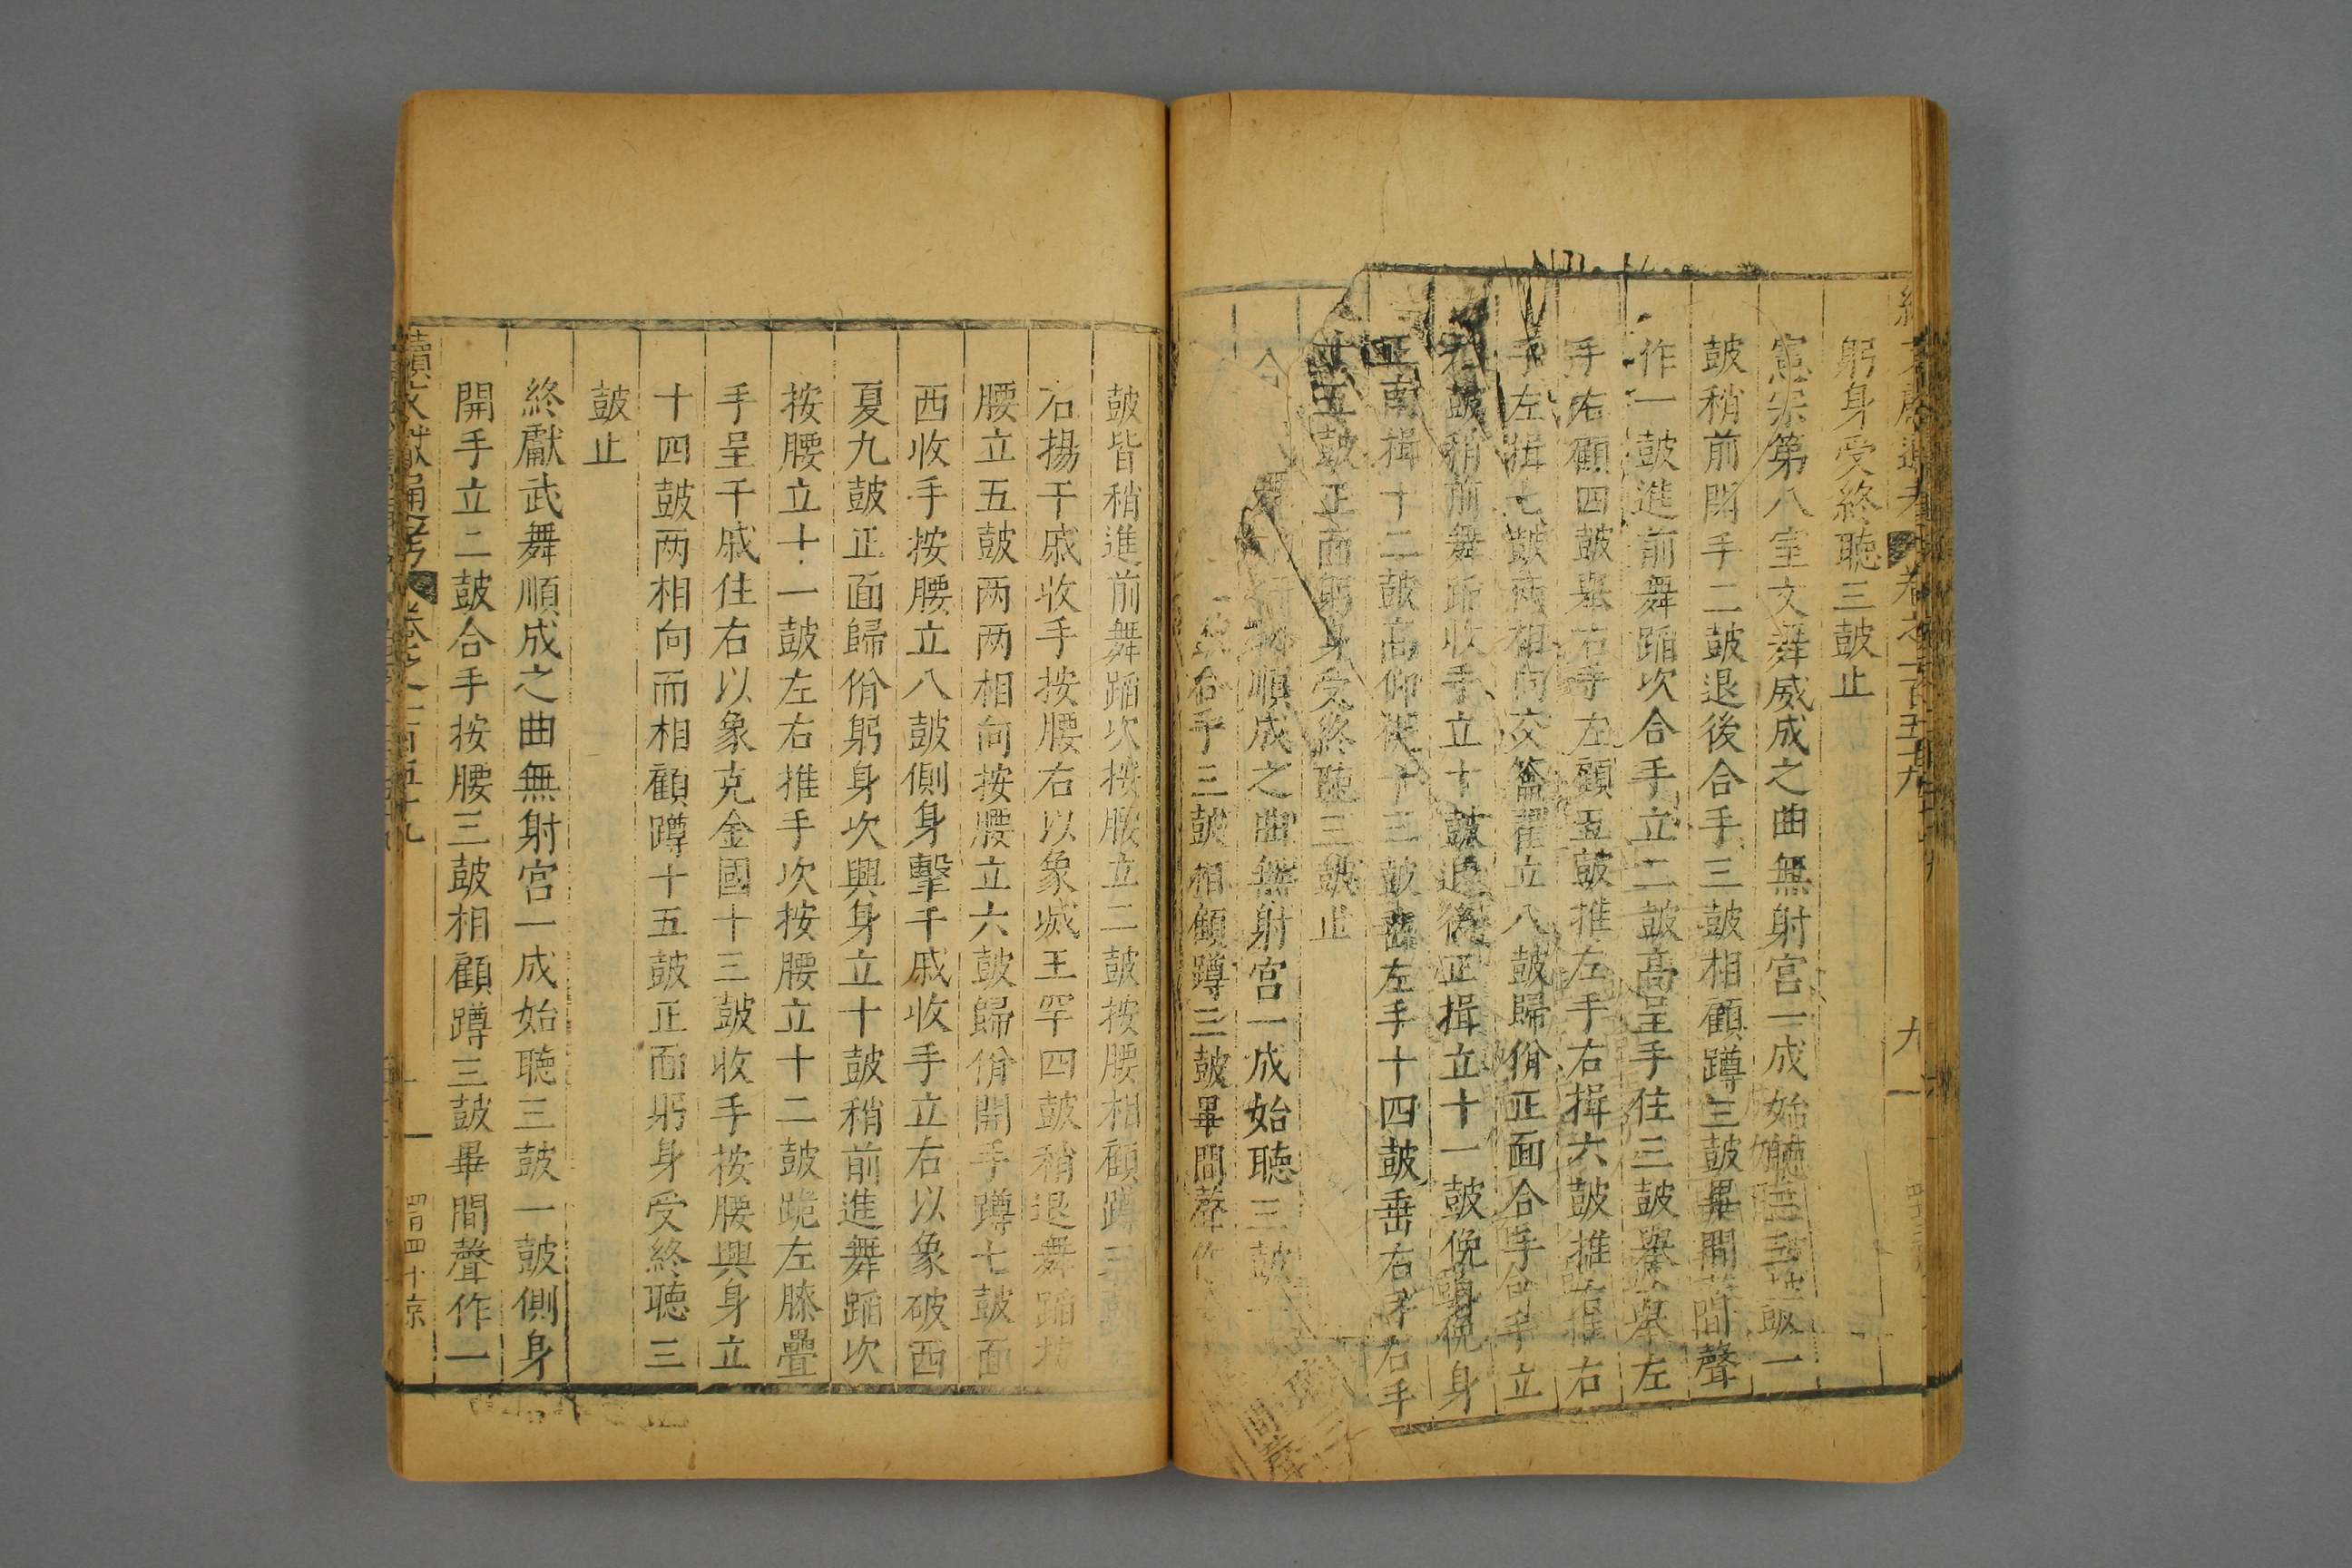 躬身受終聽三鼓止
憲宗第八室文舞威成之曲無射宮一成始聽三鼓一
鼓稍前開手二鼓退後合手三鼓相顧蹲三鼓畢間聲
作一鼓進前舞蹈次合手立二鼓高呈手住三鼓舉左
手右顧四鼓舉右手左顧五鼓推左手右揖六鼓推右
手左揖七鼓兩相向交籥翟立八鼓歸佾正面合手立
九鼓稍前舞蹈收手立十鼓退後正揖立十一鼓俛身
正南揖十二鼓高仰視十三鼓垂左手十四鼓垂右手
十五鼓正面躬身受終聽三鼓止
順成之曲無射宮一成始聽三鼓
合手三鼓相顧蹲三鼓畢間聲作
鼓皆稍進前舞蹈次按腰立二鼓按腰相顧蹲三鼓
右揚干戚收手按腰右以象滅王罕四鼓稍退舞蹈按
腰立五鼓两两相向按腰立六鼓歸佾開手蹲七鼓面
西收手按腰立八鼓側身擊干戚收手立右以象破西
夏九鼓正面歸佾躬身次興身立十鼓稍前進舞蹈次
按腰立十一鼓左右推手次按腰立十二鼓跪左膝疊
手呈干戚住右以象克金國十三鼓收手按腰興身立
十四鼓两相向而相顧蹲十五鼓正面躬身受終聽三
鼓止
終獻武舞順成之曲無射宮一成始聽三鼓一鼓側身
開手立二鼓合手按腰三鼓相顧蹲三鼓畢間聲作一
續文獻通考 卷之一百五十九